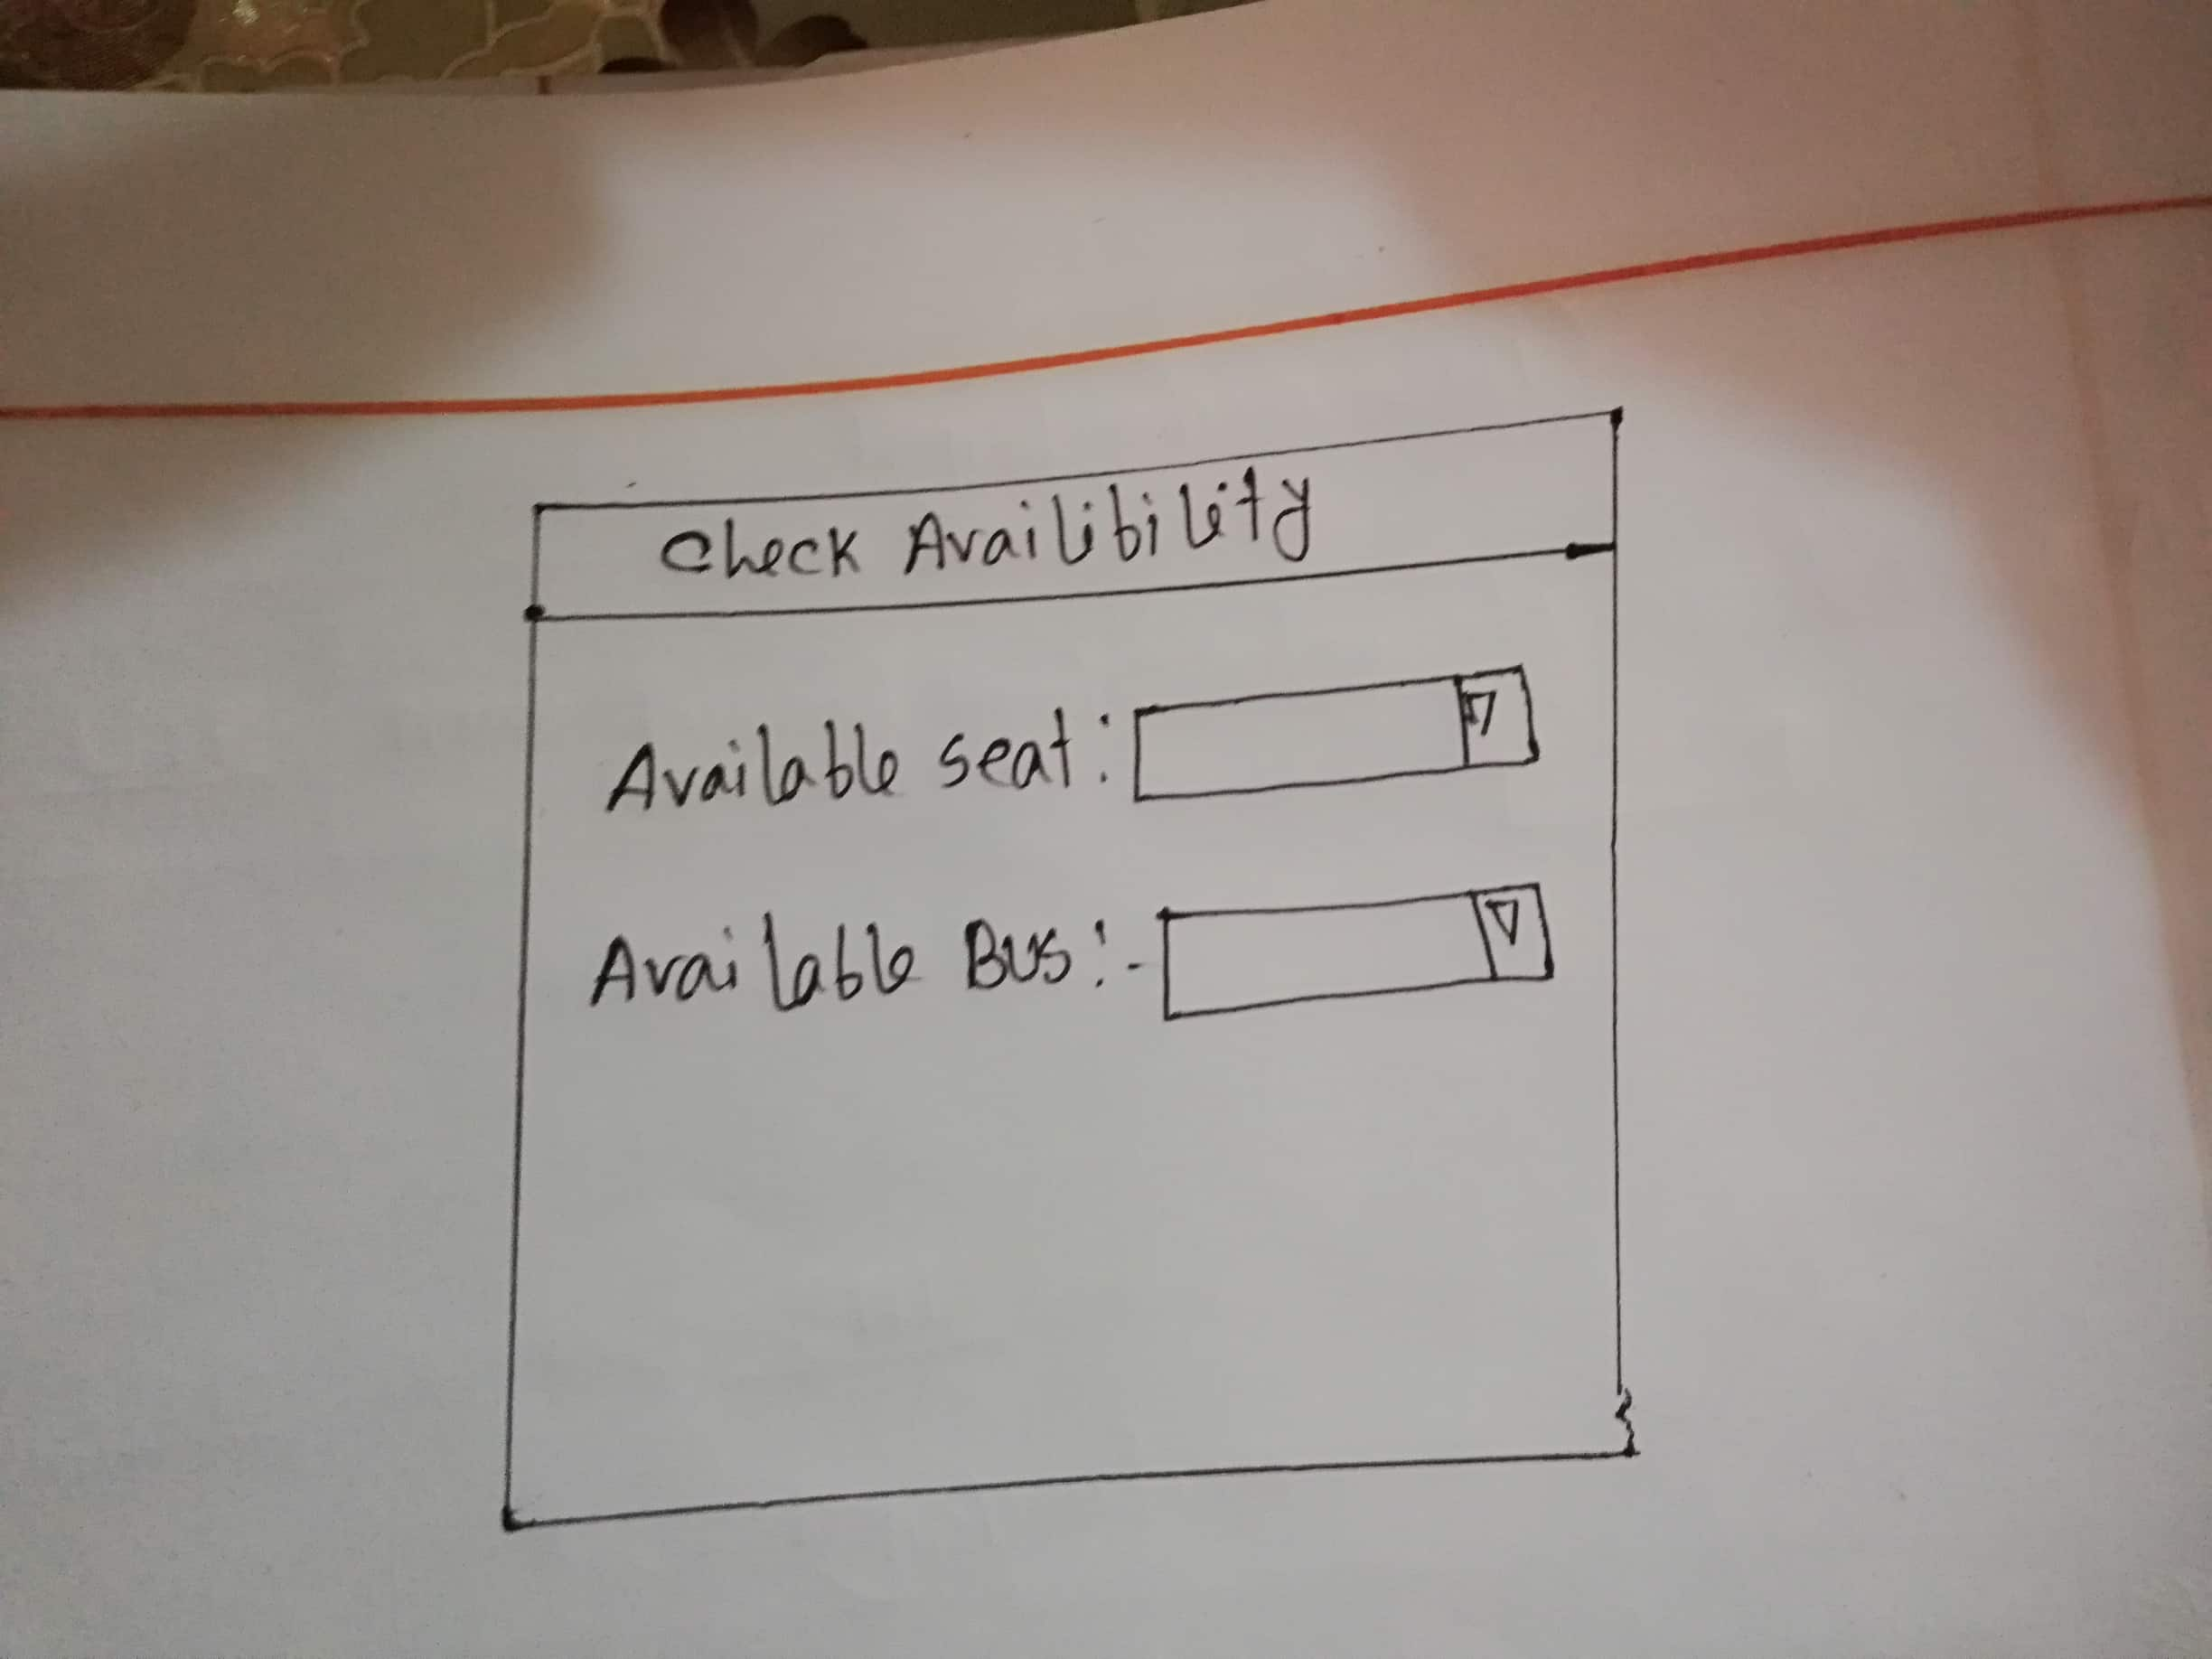 Check Availibility
Available seat:
Available Bus:-